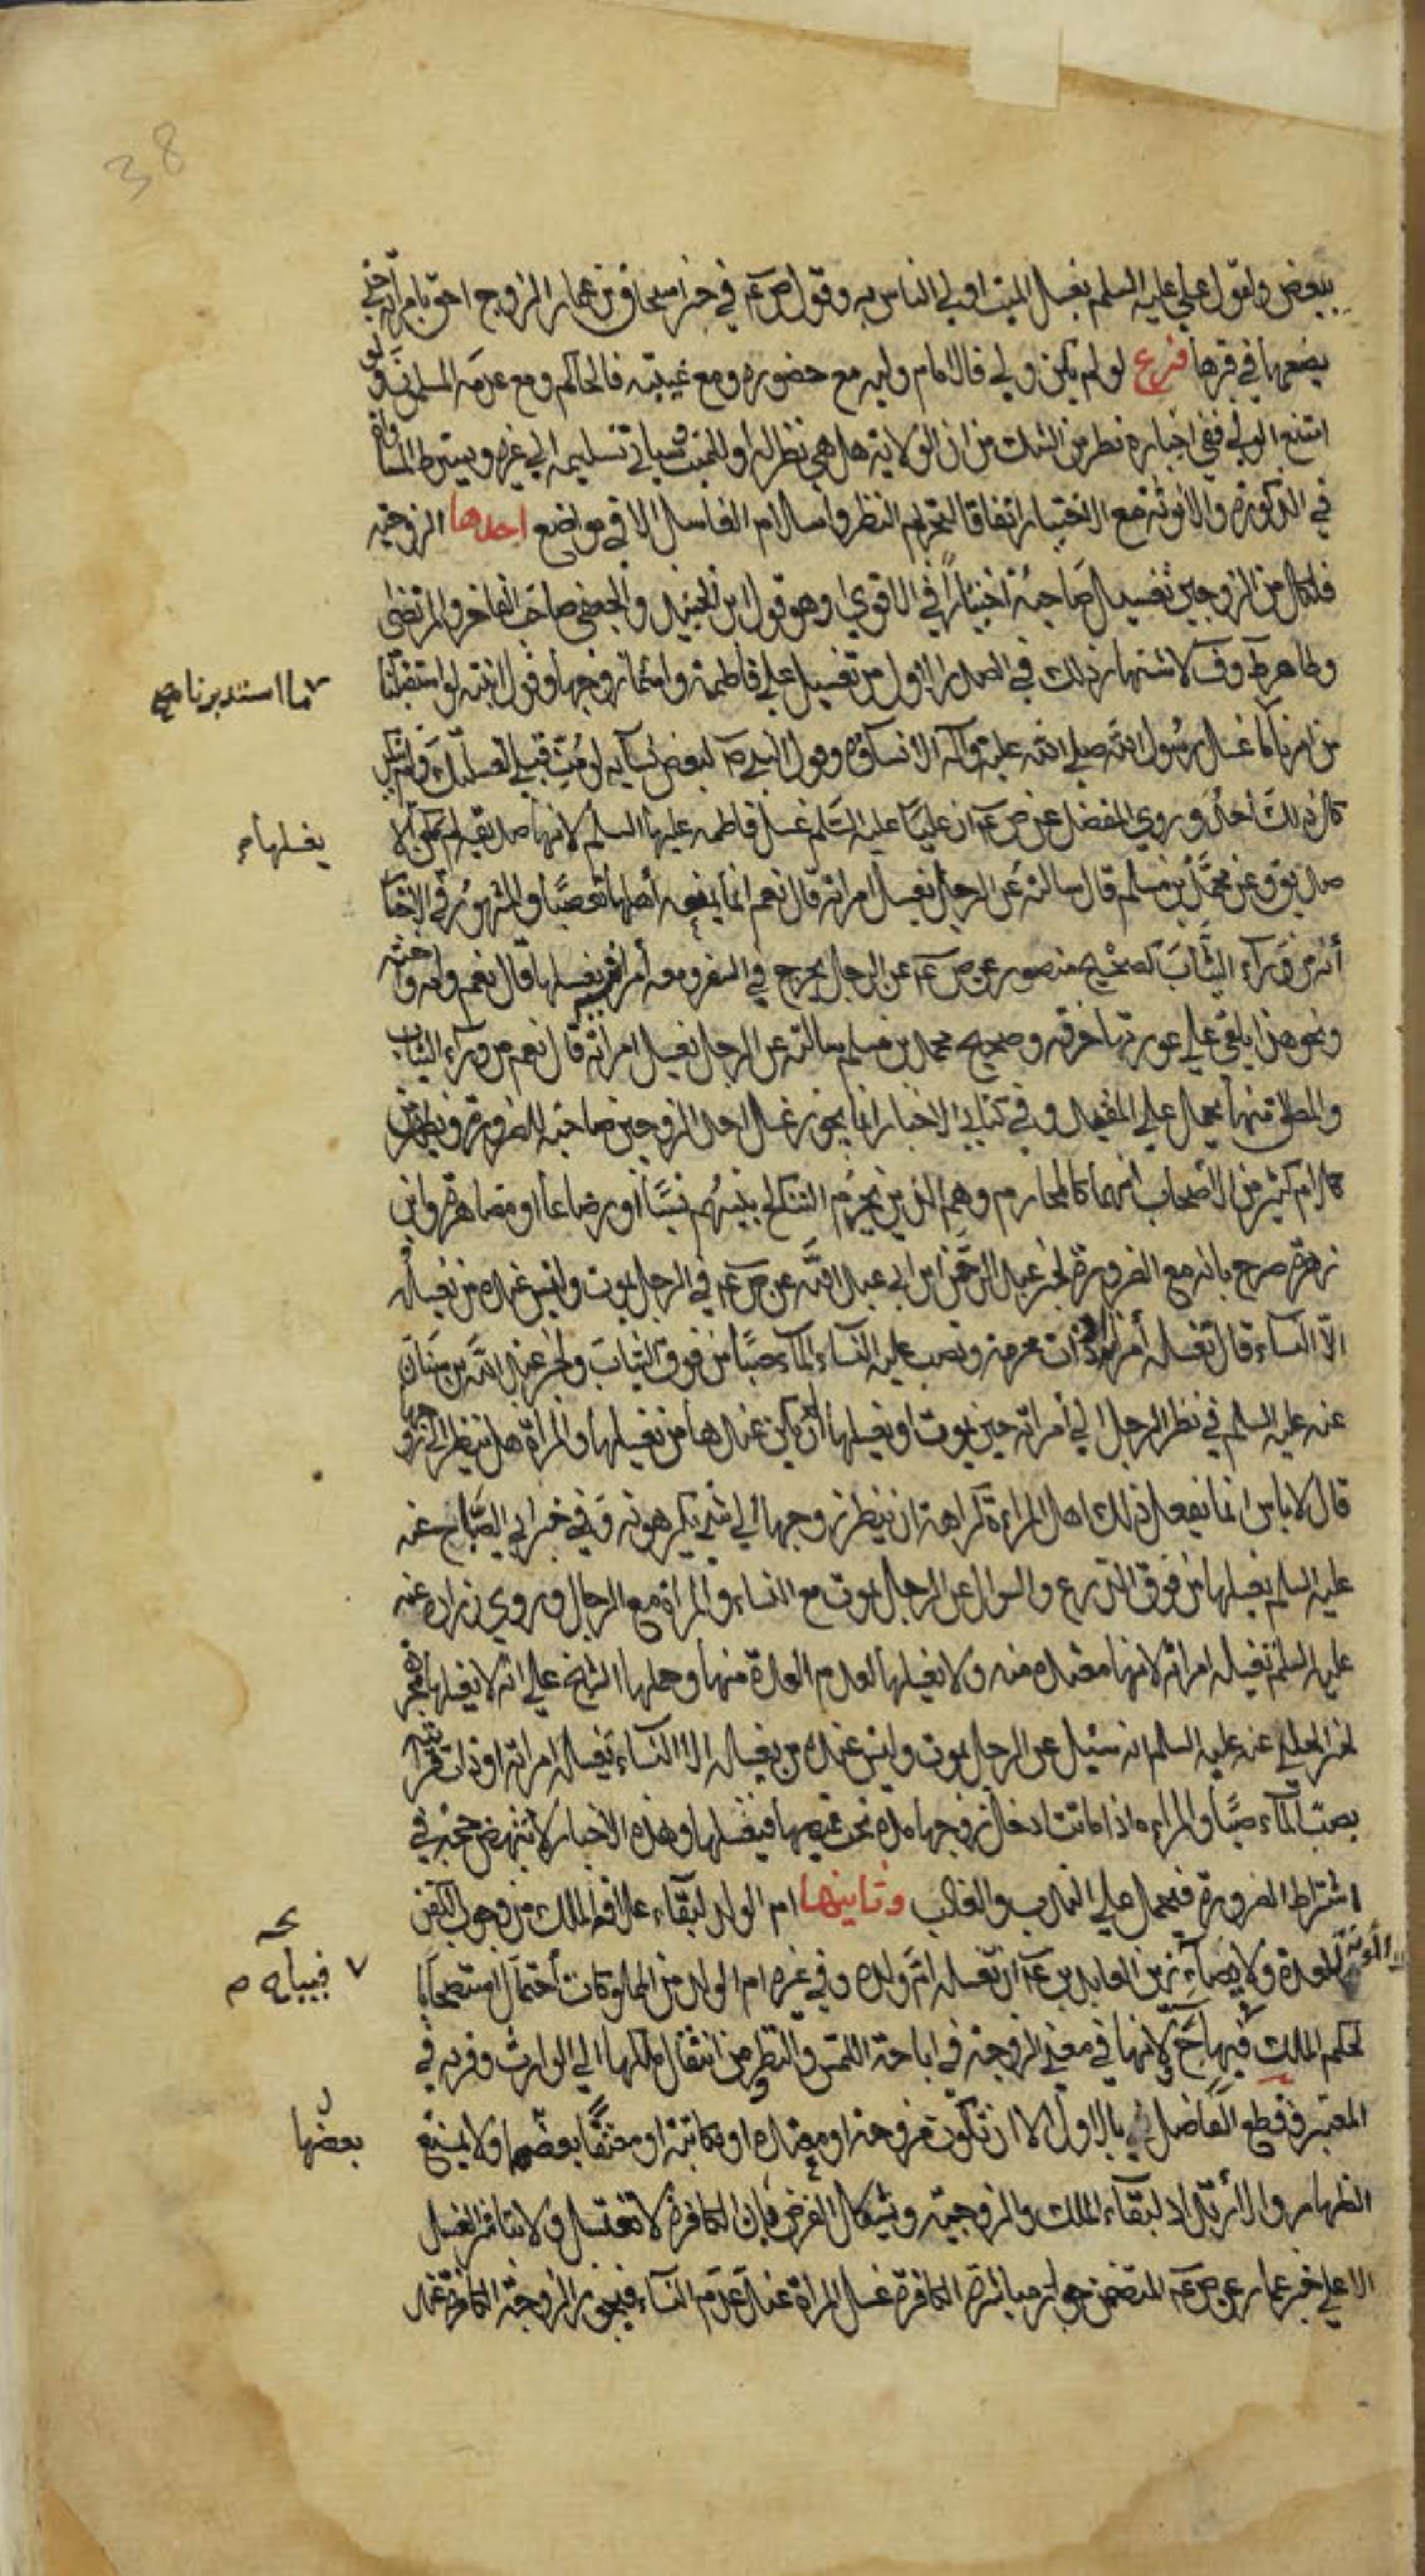 38
ببعض ولقول علي عليه السلم يغسل الميت اولي الناس به وقول ص عم في خبر اسحاق بن عمار الزوج احق بامراته حتي
يضعها في قبرها فرع لو لم يكن ولي فالامام وليه مع حضوره ومع غيبته فالحاكم ومع عدمه المسلمون ولو
امتنع الولي ففي اجباره نظر من الشك من ان الولاية هل هي نظر له او للميت وسياتي تسليمه الي غيره ويشترط المساواة
في الذكورة والانوثة مع الاختيار اتفاقا لتحريم النظر واسالام الغاسل الا في مواضع احدها الزوجية
فلكل من الزوجين تغسيل صاحبه اختيارا في الاقوي وهو قول ابن الجنيد والجعفي صاحب الفاخر والمرتضى
وظاهر ط وف لاشتهار ذلك في الصدر الاول من تغسيل علي فاطمة واسماء زوجها وقول عايشة لو استقبلنا
ما استدبرنا مح
من امرنا لما غسل رسول الله صلي الله عليه وآله الا نساؤه وقول النبي ص لبعض نسائه لو مت قبلي لغسلتك ولم ينكر
كل ذلك احد وروي المفضل عن ص عم ان عليا عليه السلم غسل فاطمه عليها السلم لانها صديقة لم يكن الا
يغسلها م
صديق وعن محمد بن مسلم قال سالته عن الرجل يغسل امراته قال نعم انما يمنعه اهلها تعصبا والمشهور في الاخبار
أنه من وراء الثياب كصحيح منصور عن ص عم عن الرجل يخرج في السفر ومعه امراته يغسلها قال نعم وامه واخته
ونحو هذا يلقي علي عورتها خرقة وصحيح محمد بن مسلم سالته عن الرجل يغسل امراته قال نعم من وراء الثياب
والمطلق منها يحمل علي المقيد وفي كتابي الاخبار انما يجوز غسل احد الزوجين صاحبه للضرورة ويظهر من
كلام كثير من الاصحاب انهما كالمحارم وهم الذين يحرم التناكح بينهم نسبا أو رضاعا او مصاهرة وابن
زهرة صرح بانه مع الضرورة لخبر عبد الرحمن ابن ابي عبد الله عن ص عم في الرجل يموت وليس عنده من يغسله
الا النساء قال تغسله أمراته او ذات محرمه وتصب عليه النساء الماء صبا من فوق الثياب ولخبر عبد الله بن سنان
عنه عليه السلم في نظر الرجل الي امراته حين يموت او يغسلها ان لم يكن عندها من يغسلها والمراة هل تنظر الي زوجها
قال لا باس انما يفعل ذلك اهل المراءة كراهة ان ينظر زوجها الي شي يكرهونه وفي خبر ابي الصباح عنه
عليه السلم يغسلها من فوق الدرع والسوال عن الرجل يموت مع النساء والمراة مع الرجال وروي زرارة عنه
عليه السلم تغسله امراته لانها معتده منه ولا يغسلها لعدم العدة منها وحملها الشيخ علي انه لا يغسلها مجردة
لخبر الحلبي عنه عليه السلم انه سئيل عن الرجل يموت وليس عنده من يغسله الا النساء تغسله امراته او ذات قرابته
بصب الماء صبا والمراءه اذا ماتت ادخل زوجها يده تحت قميصها فيغسلها وهذه الاخبار لا تنهض حجة في
اشتراط الضرورة فيحمل علي الندب والغالب وثانيها ام الولد لبقاء علاقة الملك من وجوب الكفن
والمونة للعدة ولايصاء زين العابدين عم ان تغسله ام ولده وفي غير ام الولد من المملوكات احتمال استصحابا
٧ فيباح م
لحكم الملك فيباح ح لانها في معني الزوجة في اباحة اللمس والنظر ومن انتقال ملكها الي الوارث وقربه في
المعتبر وقطع الفاضل بالاول الا ان تكون مزوجة او معتده او مكاتبة او معتقا بعضها ولا يمنع
بعضها
الظهار والارتداد لبقاء الملك والزوجية ويشكل الفرض فان الكافرة لا تغتسل ولا يتاتي الغسل
الا علي خبر عمار عن ص عم المتضمن جواز مباشرة الكافرة غسل المراة عند عدم النساء فيجوز الزوجة الكافرة عند